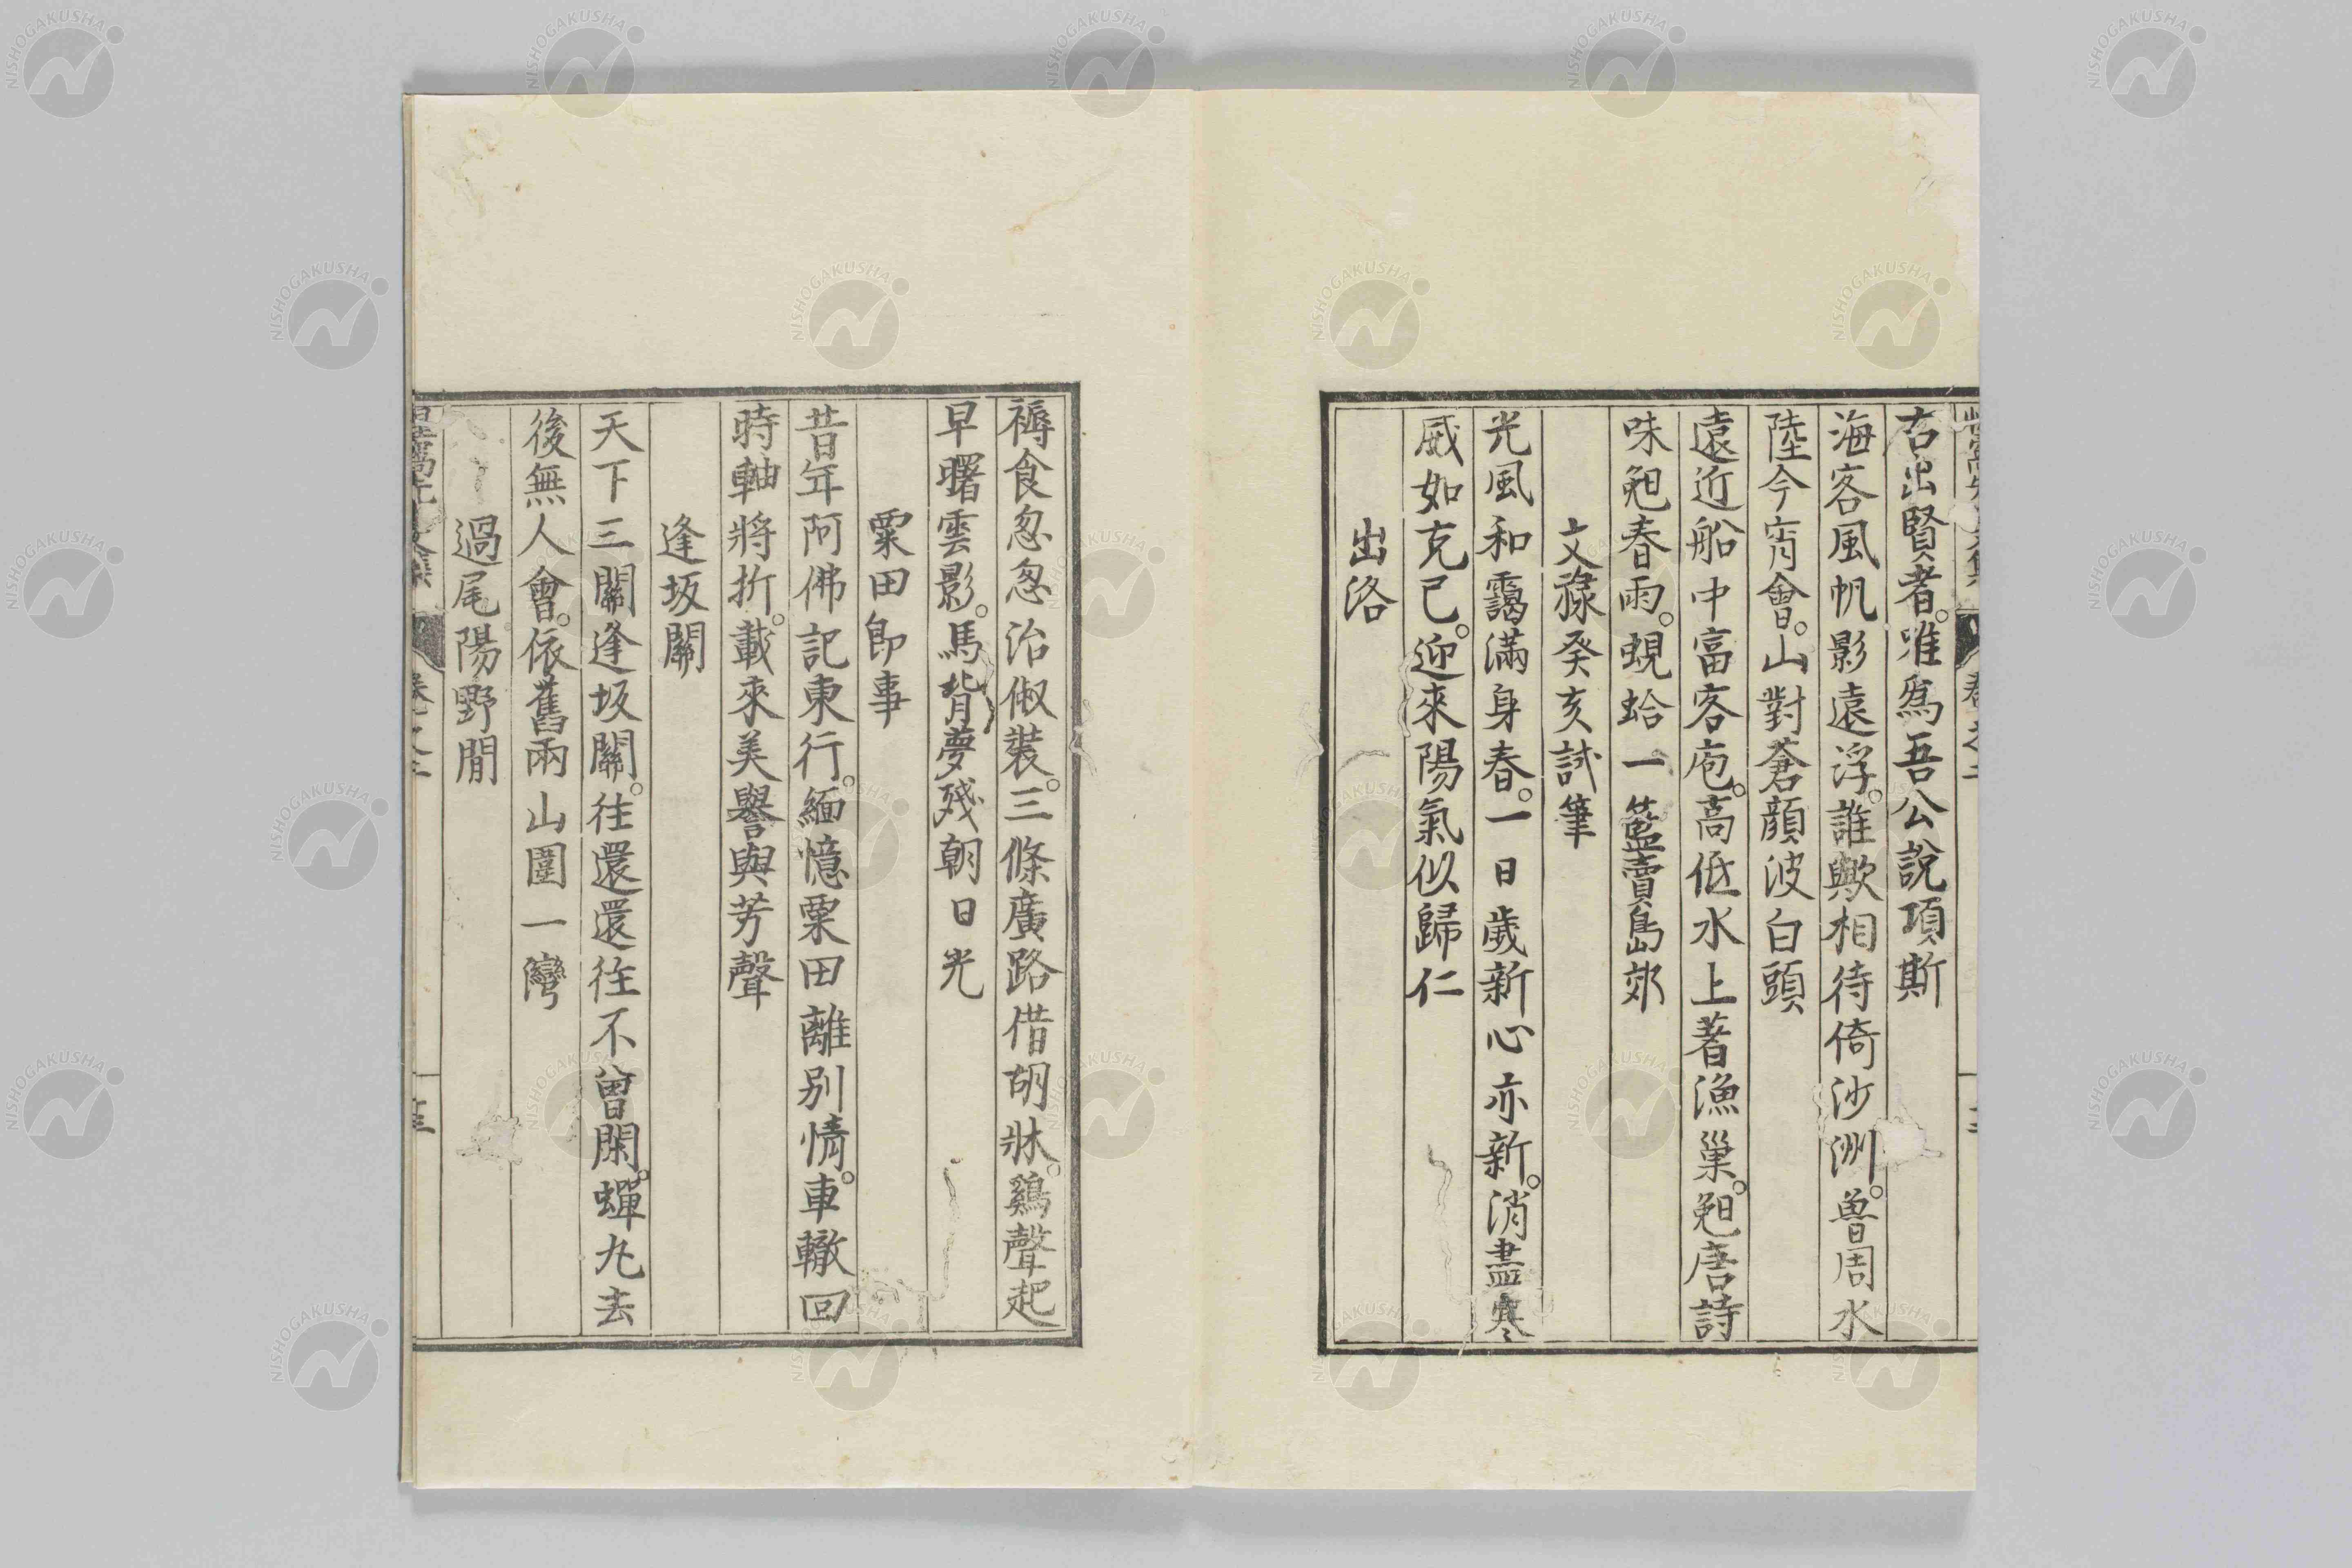 右出賢者。唯爲吾公說項斯
海客風帆影遠浮。誰歟相待倚沙洲。魯周水
陸今宵會。山對蒼顔波白頭
遠近船中富客庖。高低水上著漁巢。
唐詩
味 春雨。蜆蛤一籃賣島郊
文祿癸亥試筆
光風和靄滿身春。一日歲新心亦新。消盡寒
威如克已。迎來陽氣似歸仁
出洛
褥食怱怱治俶裝。三條廣路借胡牀。鷄聲起
早曙雲影。馬背夢殘朝日光
粟田卽事
昔年阿佛記東行。緬憶粟田離別情。車轍回
時軸將折。載來美譽與芳聲
逢坂關
天下三關逢坂關。往還還往不曾閑。蟬丸去
後無人會。依舊兩山圍一灣
過尾陽野間
NISHOGAKUSHA